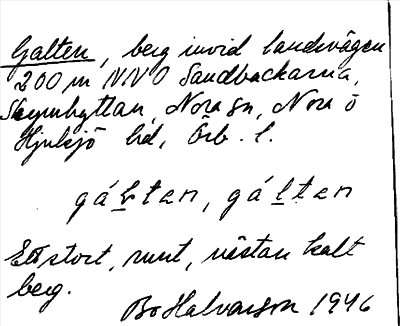 Galten, berg invid landsvägen
200 m NNO Sandbackarna,
Skrynhyttan, Nora sn, Nora o
Hjulsjö bd, Örb. l.
gáltan, gáltan
Ett stort, runt, nästan kalt
berg.
Bo Halvarson 1946